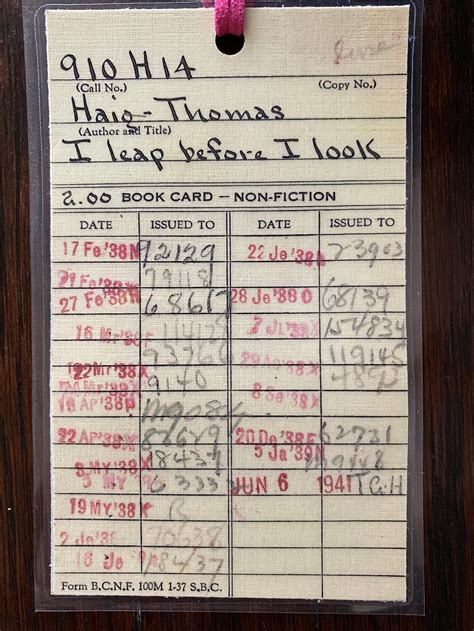 910 H14
(Call No.) (Copy No.)
Haig-Thomas
(Author and Title)
I leap before I look
2.00 BOOK CARD — NON-FICTION
DATE ISSUED TO DATE ISSUED TO
17 Fe'38N 92129 22 Je'38N 23903
21 Fe'38N 79118
27 Fe'38N 68617 28 Je'38O 68139
16 Mr'38F 7 JL'38X 154834
93766 119145
22 Mr'38X 9140
16 Ap'38 8 Se'38X
22 Ap'38X 88629 20 De'38F 62731
3 MY'38X 18437 5 Ja'39N
5 MY 6333 JUN 6 1941 TGH
19 MY'38X
2 Je'38 70638
16 Je 18437
Form B.C.N.F. 100M 1-37 S.B.C.